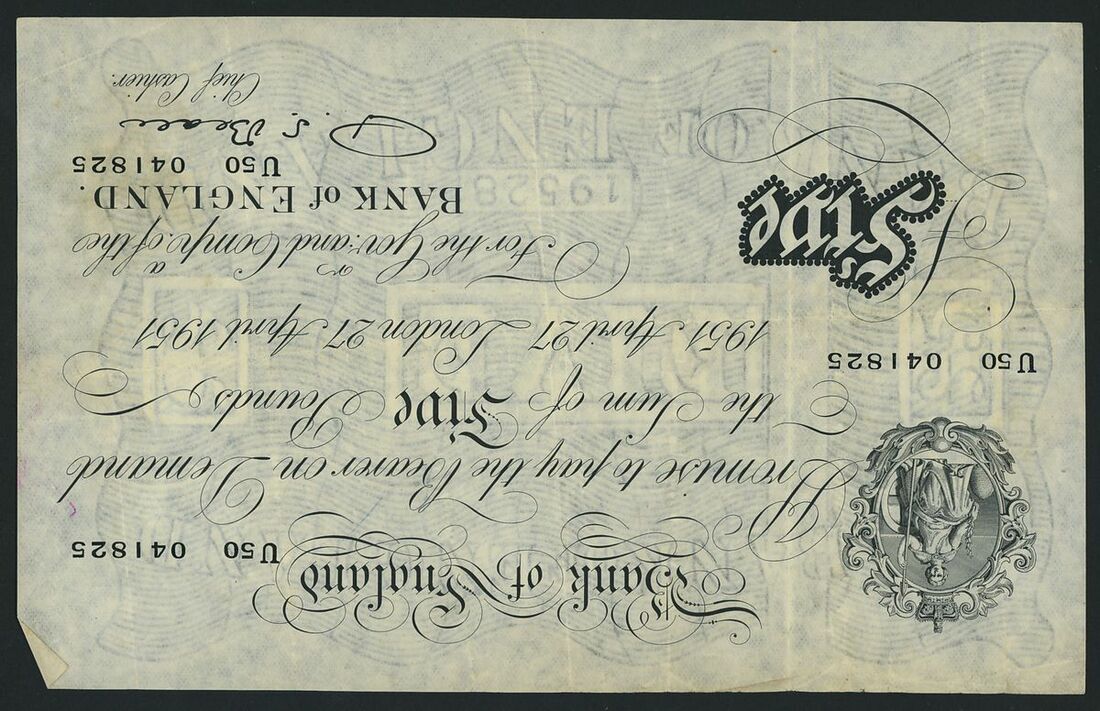 Bank of England
U50 041825
Promise to pay the Bearer on Demand
the Sum of Five Pounds
U50 041825
1951 April 27 London 27 April 1951
For the Gov.r and Comp.a of the
BANK of ENGLAND.
£ Five
U50 041825
P. S. Beale
Chief Cashier.
19528